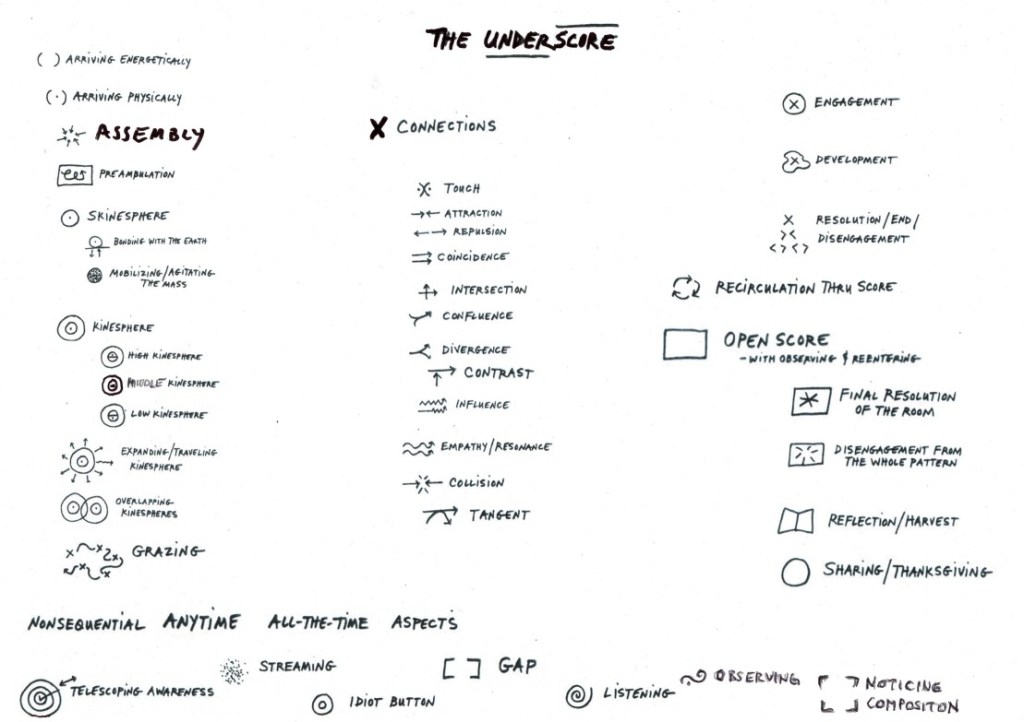 THE UNDERSCORE
ARRIVING ENERGETICALLY
ARRIVING PHYSICALLY
ASSEMBLY
PREAMBULATION
SKINESPHERE
BONDING WITH THE EARTH
MOBILIZING/AGITATING
THE MASS
KINESPHERE
HIGH KINESPHERE
MIDDLE KINESPHERE
LOW KINESPHERE
EXPANDING/TRAVELING
KINESPHERE
OVERLAPPING
KINESPHERES
GRAZING
X CONNECTIONS
TOUCH
ATTRACTION
REPULSION
COINCIDENCE
INTERSECTION
CONFLUENCE
DIVERGENCE
CONTRAST
INFLUENCE
EMPATHY/RESONANCE
COLLISION
TANGENT
ENGAGEMENT
DEVELOPMENT
RESOLUTION/END/
DISENGAGEMENT
RECIRCULATION THRU SCORE
OPEN SCORE
-WITH OBSERVING & REENTERING
FINAL RESOLUTION
OF THE ROOM
DISENGAGEMENT FROM
THE WHOLE PATTERN
REFLECTION/HARVEST
SHARING/THANKSGIVING
NONSEQUENTIAL ANYTIME ALL-THE-TIME ASPECTS
STREAMING
GAP
TELESCOPING AWARENESS
IDIOT BUTTON
LISTENING
OBSERVING
NOTICING
COMPOSITON